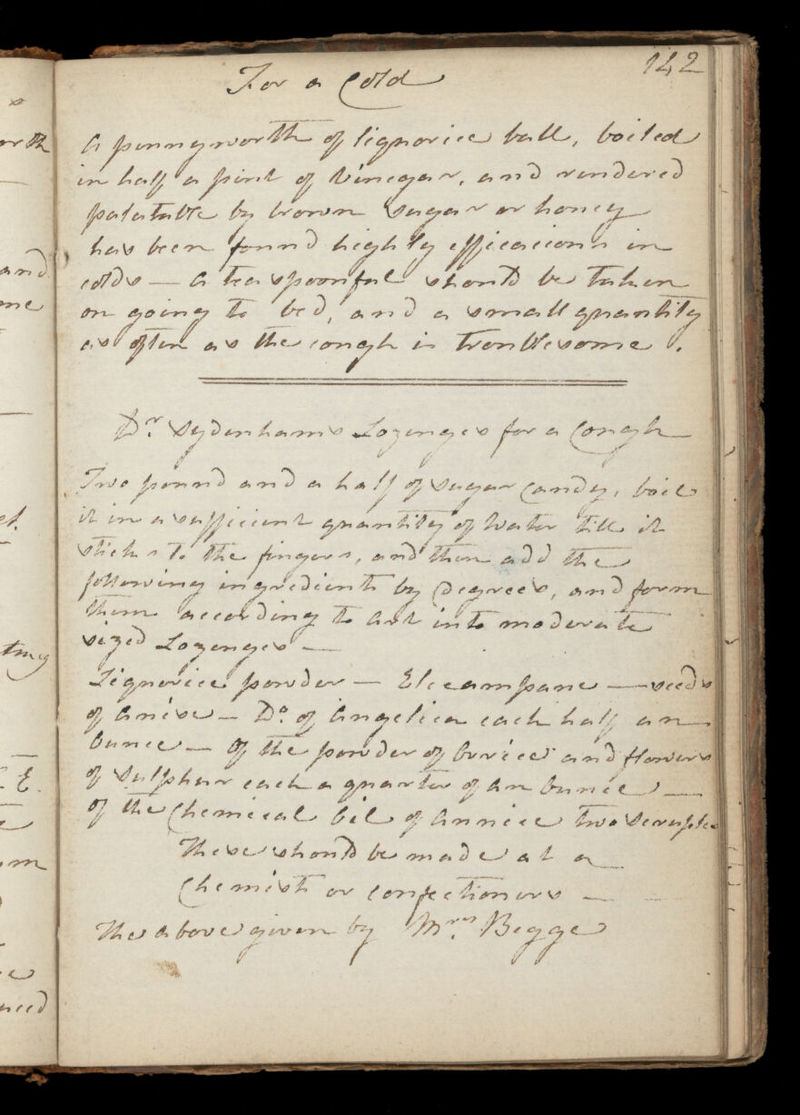 142
For a Cold
A pennyworth of liquorice ball, boiled
in half a pint of Vinegar, and rendered
palatable by brown sugar or honey
has been found highly efficacious in
colds — A teaspoonful should be taken
on going to bed, and a small quantity
as often as the cough is troublesome.
Dr. Sydenhams Lozenges for a Cough
Two pound and a half of sugar Candy, boil
it in a sufficient quantity of Water till it
sticks to the fingers, and then add the
following ingredients by Degrees, and form
them according to Art into moderate
sized Lozenges —
Liquorice powder — Elecampane — seeds
of anise — Do. of Angelica each half an
Ounce — Of the powder of Orrice and flowers
of Sulphur each a quarter of an Ounce —
of the Chemical Oil of Annice two scruples
These should be made at a
Chemists or confectioners —
The above given by Mrs. Begge